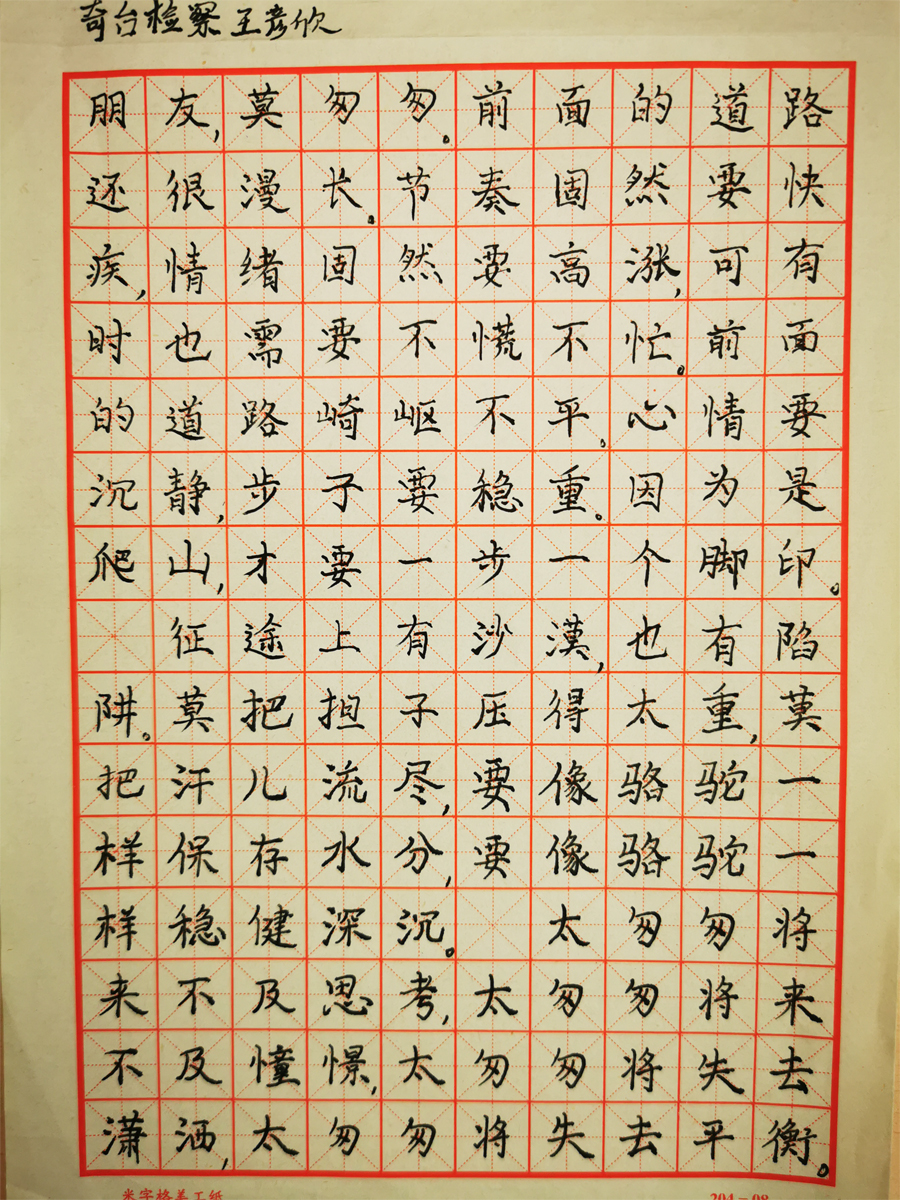 奇台检察王彦欣
朋友,莫匆匆。前面的道路
还很漫长。节奏固然要快
疾,情绪固然要高涨,可有
时也需要不慌不忙。前面
的道路崎岖不平。心情要
沉静,步子要稳重。因为是
爬山,才要一步一个脚印。
征途上有沙漠,也有陷
阱。莫把担子压得太重,莫
把汗儿流尽,要像骆驼一
样保存水分,要像骆驼一
样稳健深沉。 太匆匆将
来不及思考,太匆匆将来
不及憧憬,太匆匆将失去
潇洒,太匆匆将失去平衡。
米字格美工纸 204-08